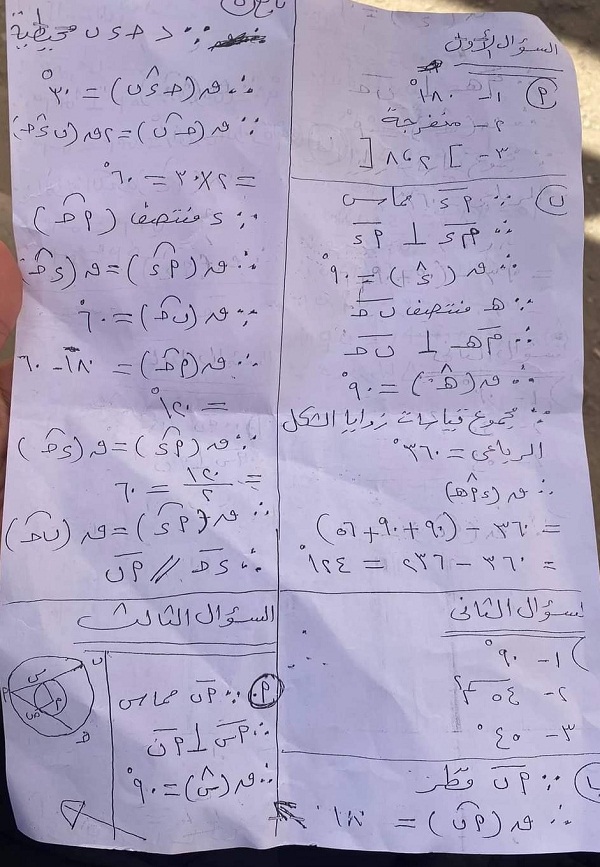 السؤال الأول
(أ) ١- ١٨٠°
٢- منفرجة
٣- ]٢، ٨[
(ب) ∵ أد مماس
∴ مد ⊥ أد
∴ ق(د) = ٩٠°
∵ هـ منتصف ب جـ
∴ م هـ ⊥ ب جـ
∴ ق(هـ) = ٩٠°
∵ مجموع قياسات زوايا الشكل
الرباعى = ٣٦٠°
∴ ق(د م هـ)
= ٣٦٠ - (٩٠ + ٩٠ + ٥٦)
= ٣٦٠ - ٢٣٦ = ١٢٤°
السؤال الثانى
١- ٩٠°
٣- ٤٥°
ب) ∵ أب قطر
∴ ق(أب) = ١٨٠
تابع ب
∵ < جـ د ب محيطية
∴ ق(جـ د ب) = ٣٠°
∴ ق(جـ ب) = ٢ق(ب د جـ)
= ٢×٣٠ = ٦٠°
∵ د منتصف (أ جـ)
∴ ق(أد) = ق(د جـ)
∵ ق(ب جـ) = ٦٠°
∴ ق(أ جـ) = ١٨٠ - ٦٠
= ١٢٠°
∴ ق(أد) = ق(د جـ)
= ١٢٠/٢ = ٦٠
∴ ق(أد) = ق(ب جـ)
∴ د جـ // أب
السؤال الثالث
(أ) ∵ أب مماس
∴ م س ⊥ أب
∴ ق(س) = ٩٠°